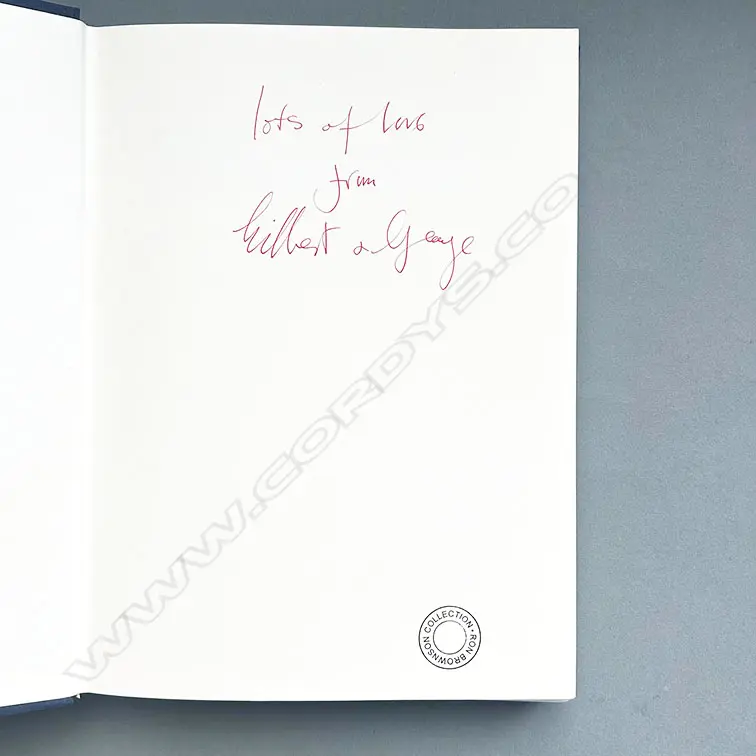 lots of love
from
Gilbert & George
WWW.CORDYS.CO
RON BROWNSON COLLECTION •